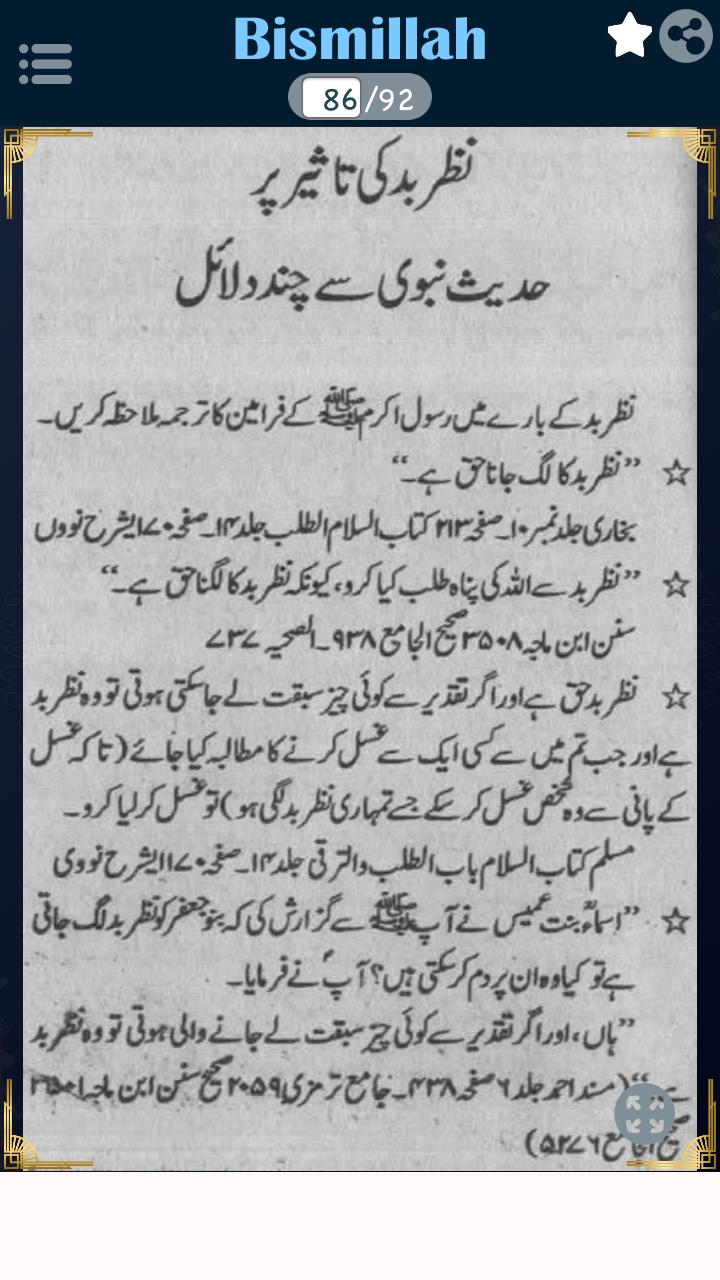 Bismillah
86/92
نظر بد کی تاثیر پر
حدیث نبوی سے چند دلائل
نظر بد کے بارے میں رسول اکرم ﷺ کے فرامین کا ترجمہ ملاحظہ کریں۔
☆ ”نظر بد کا لگ جانا حق ہے۔“
بخاری جلد نمبر ۱۰۔ صفحہ ۲۱۳ کتاب السلام الطلب جلد ۱۴۔ صفحہ ۱۷۰ایشرح نووں
☆ ”نظر بد سے اللہ کی پناہ طلب کیا کرو، کیونکہ نظر بد کا لگنا حق ہے۔“
سنن ابن ماجہ ۳۵۰۸ صحیح الجامع ۹۳۸۔ الصحیہ ۷۳۷
☆ نظر بد حق ہے اور اگر تقدیر سے کوئی چیز سبقت لے جا سکتی ہوتی تو وہ نظر بد
ہے اور جب تم میں سے کسی ایک سے غسل کرنے کا مطالبہ کیا جائے (تاکہ غسل
کے پانی سے وہ شخص غسل کر سکے جسے تمہاری نظر بد لگی ہو) تو غسل کر لیا کرو۔
مسلم کتاب السلام باب الطلب والترقی جلد ۱۴۔ صفحہ ۱۷۰ ایشرح نووی
☆ ”اسماءؓ بنت عمیس نے آپ ﷺ سے گزارش کی کہ بنو جعفر کو نظر بد لگ جاتی
ہے تو کیا وہ ان پر دم کر سکتی ہیں؟ آپؐ نے فرمایا۔
”ہاں، اور اگر تقدیر سے کوئی چیز سبقت لے جانے والی ہوتی تو وہ نظر بد
ہے“ (مسند احمد جلد ۶ صفحہ ۴۳۸۔ جامع ترمزی ۲۰۵۹ صحیح سنن ابن ماجہ
صحیح الجامع ۵۲۷۶)